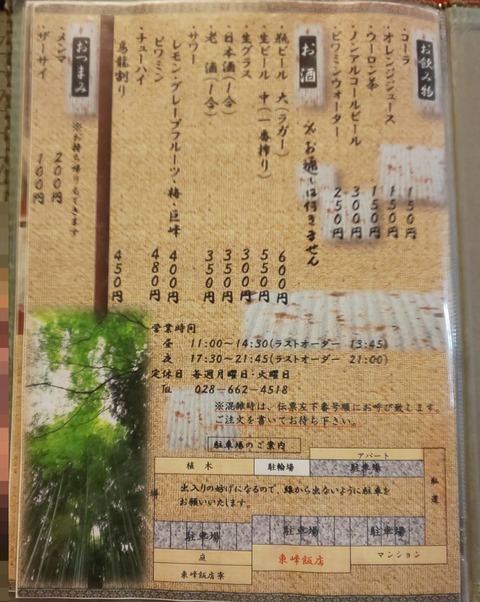 お飲み物
・コーラ 150円
・オレンジジュース 150円
・ウーロン茶 150円
・ノンアルコールビール 300円
・ビワミンウォーター 250円
お酒 ※お通しは付きません
・瓶ビール 大(ラガー) 600円
・生ビール 中(一番搾り) 550円
・生グラス 300円
・日本酒(1合) 350円
・老酒(1合) 350円
・サワー
レモン・グレープフルーツ・梅・巨峰 400円
ビワミン 480円
・チューハイ
烏龍割り 450円
おつまみ ※お持ち帰りもできます
・メンマ 200円
・ザーサイ 100円
営業時間
昼 11:00~14:30(ラストオーダー 13:45)
夜 17:30~21:45(ラストオーダー 21:00)
定休日 毎週月曜日・火曜日
℡ 028-662-4518
※混雑時は、伝票左下番号順にお呼び致します。
ご注文を書いてお待ち下さい。
駐車場のご案内
アパート
植木 駐輪場 駐車場
私道
出入りの妨げになるので、線から出ないように駐車を
お願いいたします。
駐車場 駐車場 駐車場
庭 東峰飯店 マンション
東峰飯店寮